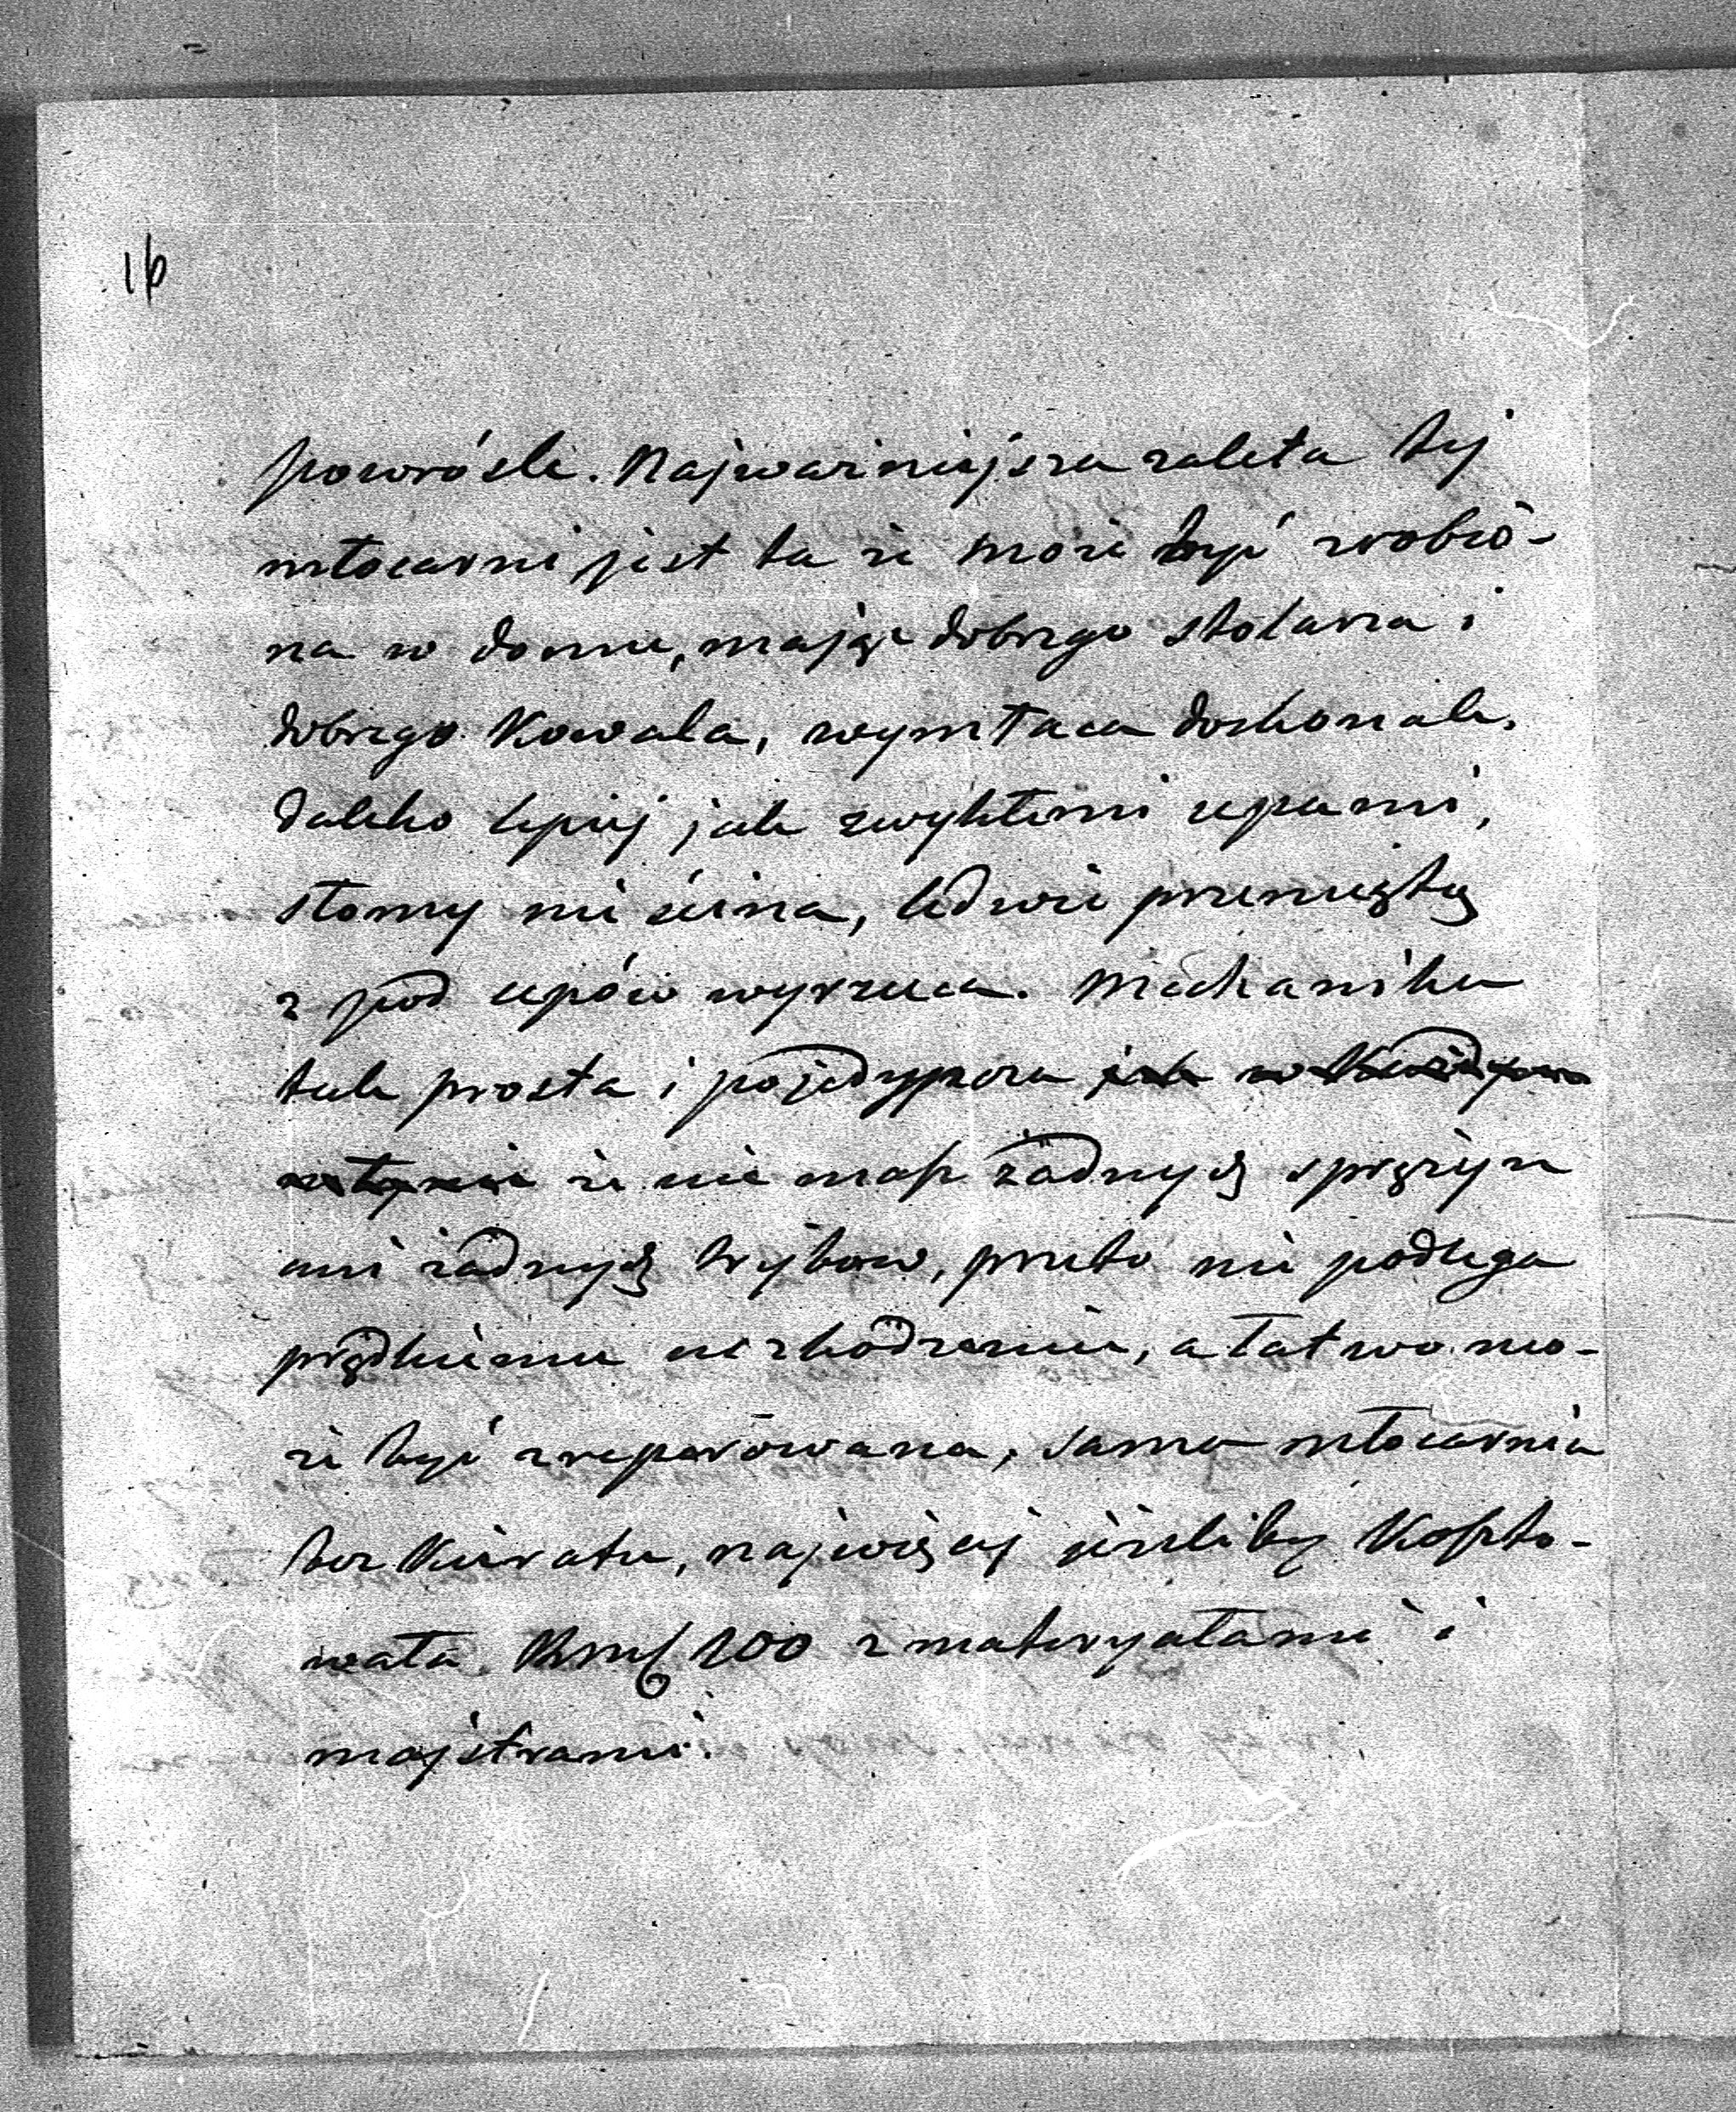 16
powróśle. Najważniejsza zaleta tej
młocarni jest ta że może być zrobio-
na w domu, mając dobrego stolarza i
dobrego Kowala, wymłaca doskonale,
daleko lepiej jak zwykłemi cepami,
słomy nie ścina, ledwie przemiętą
z pod cepów wyrzuca. Mechanika
tak prosta i pojedyncza jak w każdym
że nie masz żadnych sprężyn
ani żadnych trybow, przeto nie podlega
prędkiemu uszkodzeniu, a łatwo mo-
że być zreparowana, sama młocarnia
bez Kieratu, najwięcej jeżeliby koszto-
wała 200 z materyałami i
majstrami.